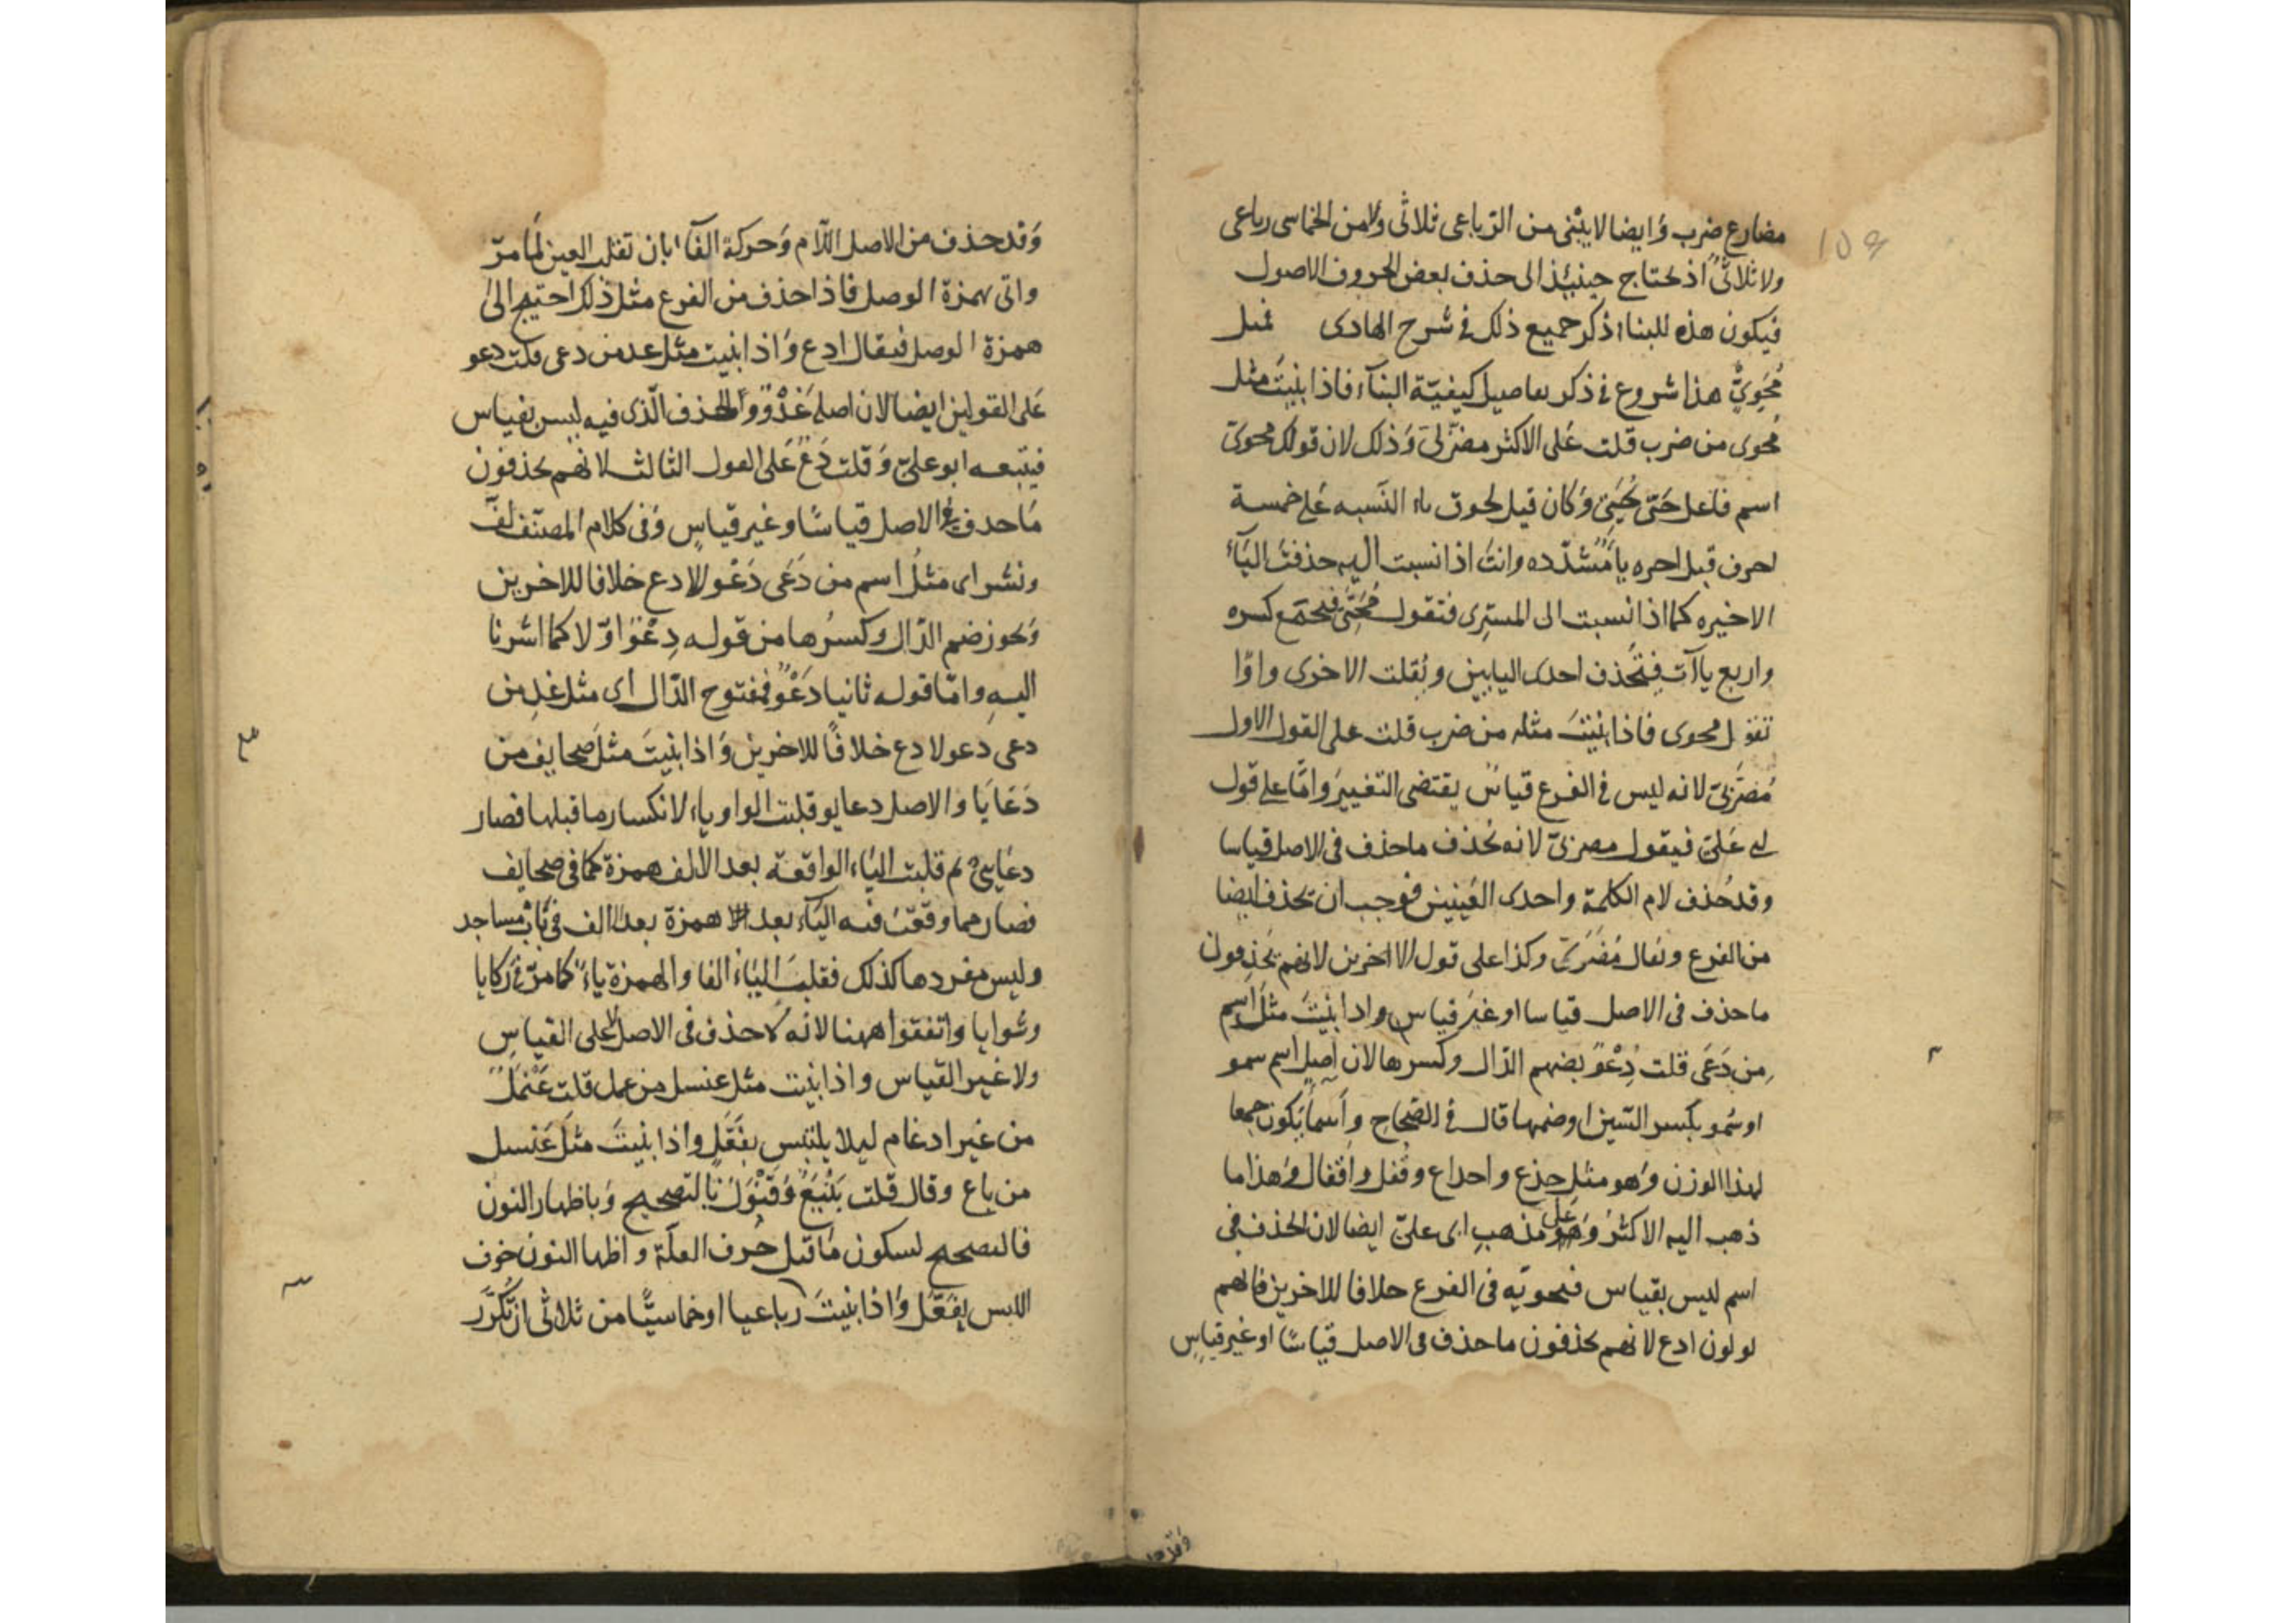 مضارع ضرب وَايضا لا يبْنى من الرّباعى ثلاثى ولا من الخماسى رباعى
ولا ثلاثىٌّ اذ يحتاج حينئذ الى حذف بعض الحروف الاصول
فيكون هذه للبناء ذكر جميع ذلك فى شرح الهادى
مُحَوِيٌّ هذا شروع فى ذكر تفاصيل كيفيّة البنآء فاذا بنيتَ مثل
مُحوى من ضرب قلت عَلى الاكثر مضرَّبىّ وَذلك لان قولك محوىّ
اسم فاعل حَتّى يُحَيّى وَكان قبل لحوق ياء النّسبه عَلى خمسة
احرف قبل اخره ياءٌ مُشدّده وانتَ اذا نسبت اليه حذفتَ اليآءَ
الاخيره كما اذا نسبت الى المسترى فتقول مُحَيّىّ فيجتمع كسره
واربع يآات فتُحذف احدى اليايين وتُقلب الاخرى واوًا
تقول محوى فاذا بنيتَ مثله من ضرب قلت على القول الاول
مُضَرّبىّ لانه ليس فى الفرع قياسٌ يقتضى التغييرَ وامّا على قول
ابى عَلىّ فيقول مضرىّ لانه يُحذف ما حذف فى الاصل قياسا
وقد حُذف لام الكلمة واحدى العَينين فوجب ان تحذف ايضا
من الفرع ويقال مُضَرىّ وكذا على قول الاخرين لانهم يَحذِفون
ما حذف فى الاصل قياسا او غيرَ قياس واذا بنيتَ مثلَ اسم
من دَعَى قلت دِعْوٌ بضمّ الدّال وكسرها لان اصل اسم سمو
او سُمو بكسر السّين او ضمها قال فى الصّحاح واَسماءٌ يَكون جمعا
لهذا الوزن وَهو مثل جذع واجذاع وقفل واقفال وهذا ما
ذهب اليه الاكثرُ وَهوَ على مذهبِ ابى علىّ ايضا لان الحذف فى
اسم ليس بقياس فى الفرع خلافا للاخرين فانهم
يقولون ادع لانهم يحذفون ما حذف فى الاصل قياسًا او غير قياسٍ
وَقد حذف من الاصل اللّام وَحركة الفآءِ بان تقلب العين لما مرّ
واتى بهمزة الوصل فاذا حذف من الفرع مثل ذلك احتيج الى
همزة الوصل فيقال ادع وَاذا بنيت مثل غد من دعى قلت دعو
عَلى القولين ايضا لان اصله غَدْوٌ وَالحذف الّذى فيه ليس بقياس
فيتبعه ابو علىّ وَقلت دَعٌ عَلى القول الثالث لانهم يحذفون
مَا حذف فى الاصل قياسًا او غير قياسٍ وَفى كلام المصنّف لفّ
ونشر اى مثلُ اسم من دَعَى دَعْو لا ادع خلافا للاخرين
وَيجوز ضم الدّال وكسرُها من قوله دِعْوٌ اوّلا كما اشرنا
اليهِ وامّا قوله ثانيا دَعْوٌ فمفتوح الدّال اى مثل غدٍ من
دعى دعو لا دع خلافًا للاخرين وَاذا بنيتَ مثلَ صحايف من
دَعَايَا والاصل دعايو قلبت الواو ياء لانكسار ما قبلها فصار
دعَايىُ ثم قلبت اليَاء الواقعة بعد الالف همزة كما فى صحايف
فصار مما وقعَت فيه اليَآء بعد همزة بعد الف فى باب مساجد
وليس مفردها كذلك فقلبت اليَاءُ الفا والهمزة ياءً كما مرّ فى رَكايا
وشوايا واتفقوا ههنا لانه لا حذف فى الاصل لا على القياسِ
ولا غير القياس واذا بنيت مثل عنسل من عمل قلت عَنْمَلٌ
من غير ادغام ليلا يلتبس بفَعَّلٍ واذا بنيتَ مثلَ عَنسل
من باع وقال قلت بَنْيَعٌ وَقَنْوَلٌ بالتصحيح وَباظهار النون
فالتصحيح لسكون مَا قبل حُرف العلّة واظهار النون خوف
اللبس بِفَعَّل وَاذا بنيتَ رباعيا او خماسيًّا من ثلاثى ان تُكَرَّر